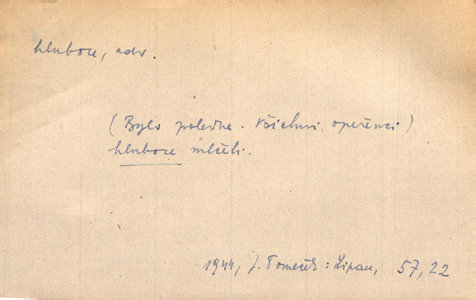 hluboce, adv.
(Bylo poledne. Všichni opeřenci)
hluboce mlčeli.
1944, J. Tomeček: Lipan, 57, 22